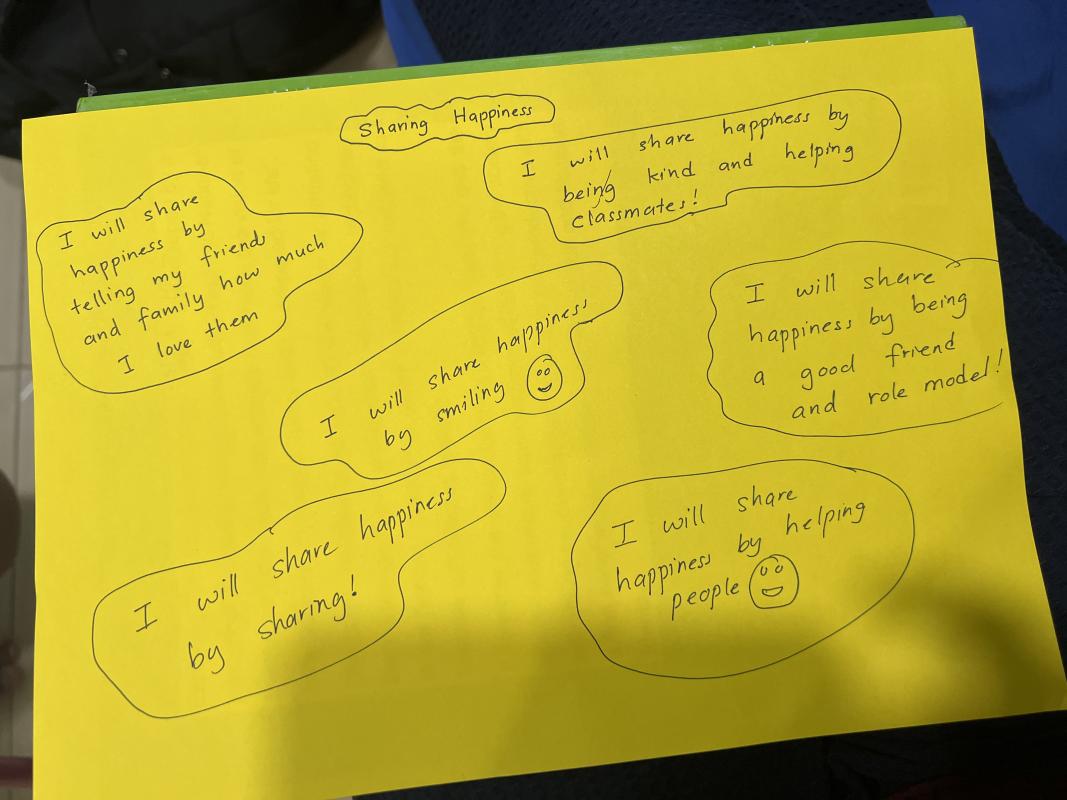 Sharing Happiness
I will share happiness by
being kind and helping
classmates!
I will share
happiness by
telling my friends
and family how much
I love them
I will share happiness
by smiling
I will share
happiness by being
a good friend
and role model!
I will share happiness
by sharing!
I will share
happiness by helping
people